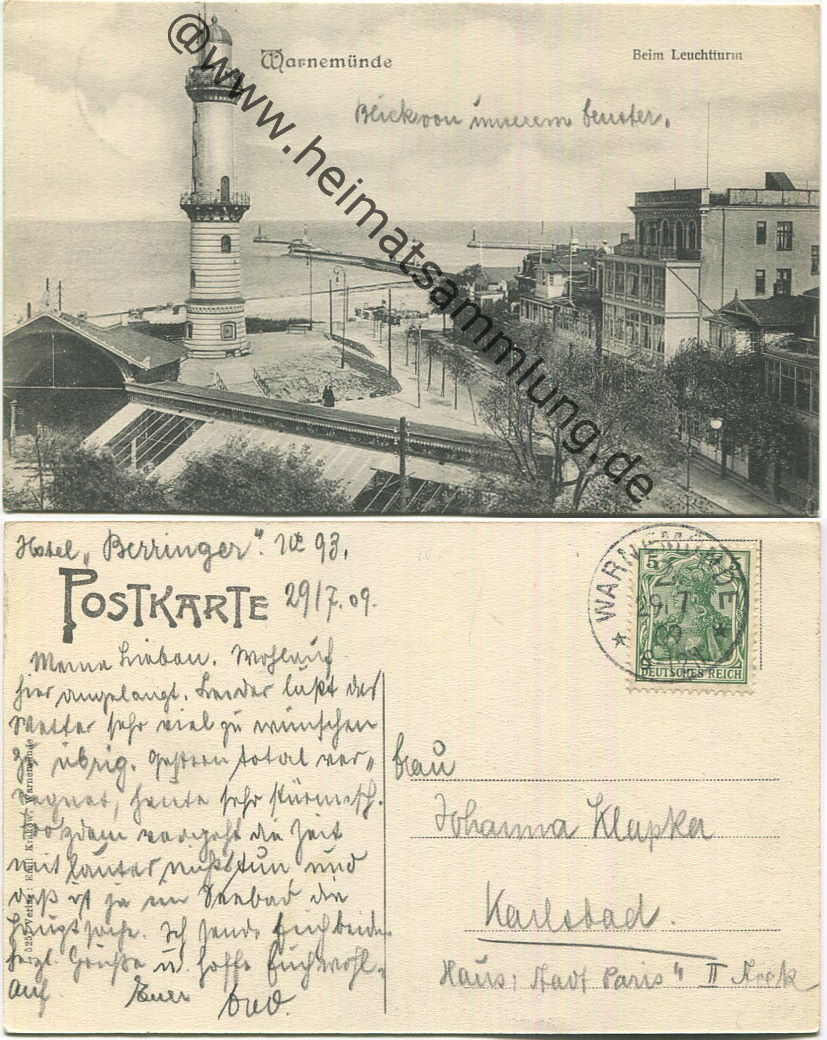 Warnemünde
Beim Leuchtturm
Blick von unserem Fenster.
@www.heimatsammlung.de
Hotel „Berringer". No 93.
POSTKARTE
29/7.09.
WARNEMÜNDE
29.7
09
5
DEUTSCHES REICH
Meine Lieben. Wohlauf
hier angelangt. Leider läßt das
Wetter sehr viel zu wünschen
übrig. Gestern total ver-
regnet, heute sehr stürmisch.
Trotzdem vergeht die Zeit
mit lauter nichtstun und
daß ist ja im Seebad die
Hauptsache. Ich sende Euch beiden
herzl. Grüße u. hoffe Euch wohl-
auf. Euer
Frau
Johanna Klapka
Karlsbad.
Haus: Stadt Paris" II Stock
Verlag: Warnemünde